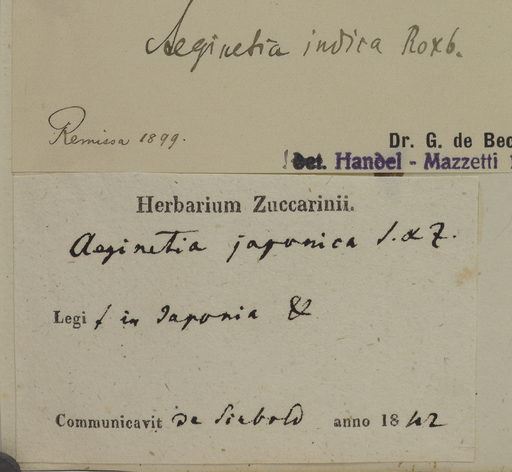 Aeginetia indica Roxb.
Remissa 1899.
Dr. G. de Bec
! det. Handel - Mazzetti
Herbarium Zuccarinii.
Aeginetia japonica S. & Z.
Legi in Japonia
Communicavit de Siebold anno 1842